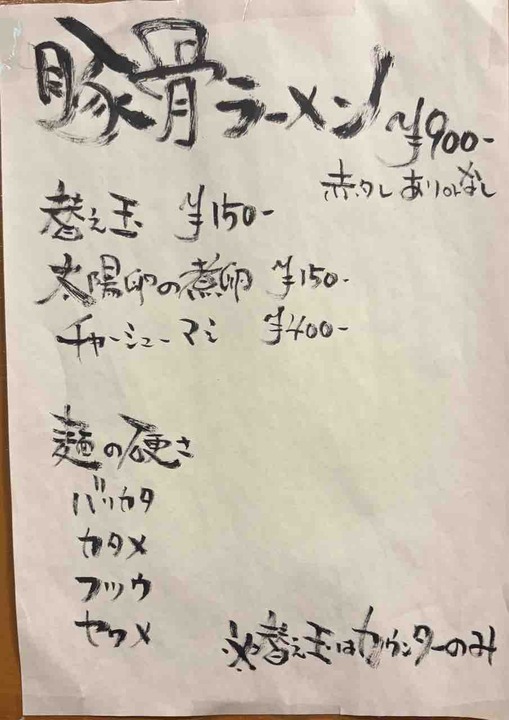 豚骨ラーメン ¥900-
赤タレ ありorなし
替え玉 ¥150-
太陽卵の煮卵 ¥150-
チャーシューマシ ¥400-
麺の硬さ
バリカタ
カタメ
フツウ
ヤワメ
※替え玉はカウンターのみ